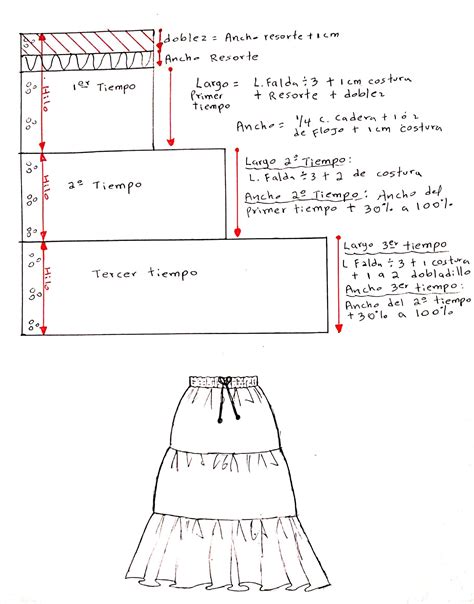 doblez = Ancho resorte + 1cm
Ancho Resorte
Hilo
1er Tiempo
Largo Primer tiempo = L. Falda ÷ 3 + 1cm costura
+ Resorte + doblez
Ancho = 1/4 c. Cadera + 1 ó 2
de flojo + 1cm costura
Hilo
2º Tiempo
Largo 2º Tiempo:
L. Falda ÷ 3 + 2 de costura
Ancho 2º Tiempo: Ancho del
Primer tiempo + 30% a 100%
Hilo
Tercer tiempo
Largo 3er tiempo
L Falda ÷ 3 + 1 costura
+ 1 a 2 dobladillo
Ancho 3er tiempo:
Ancho del 2º tiempo
+ 30% a 100%